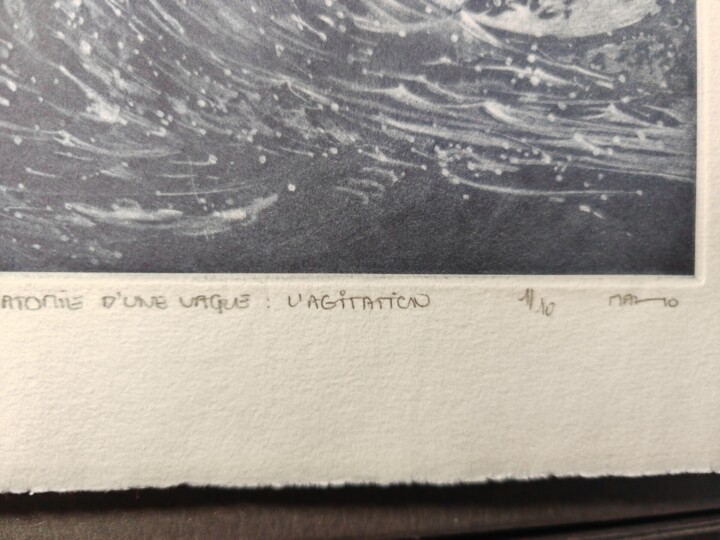 ATOMIE D'UNE VAGUE : L'AGITATION 1/10